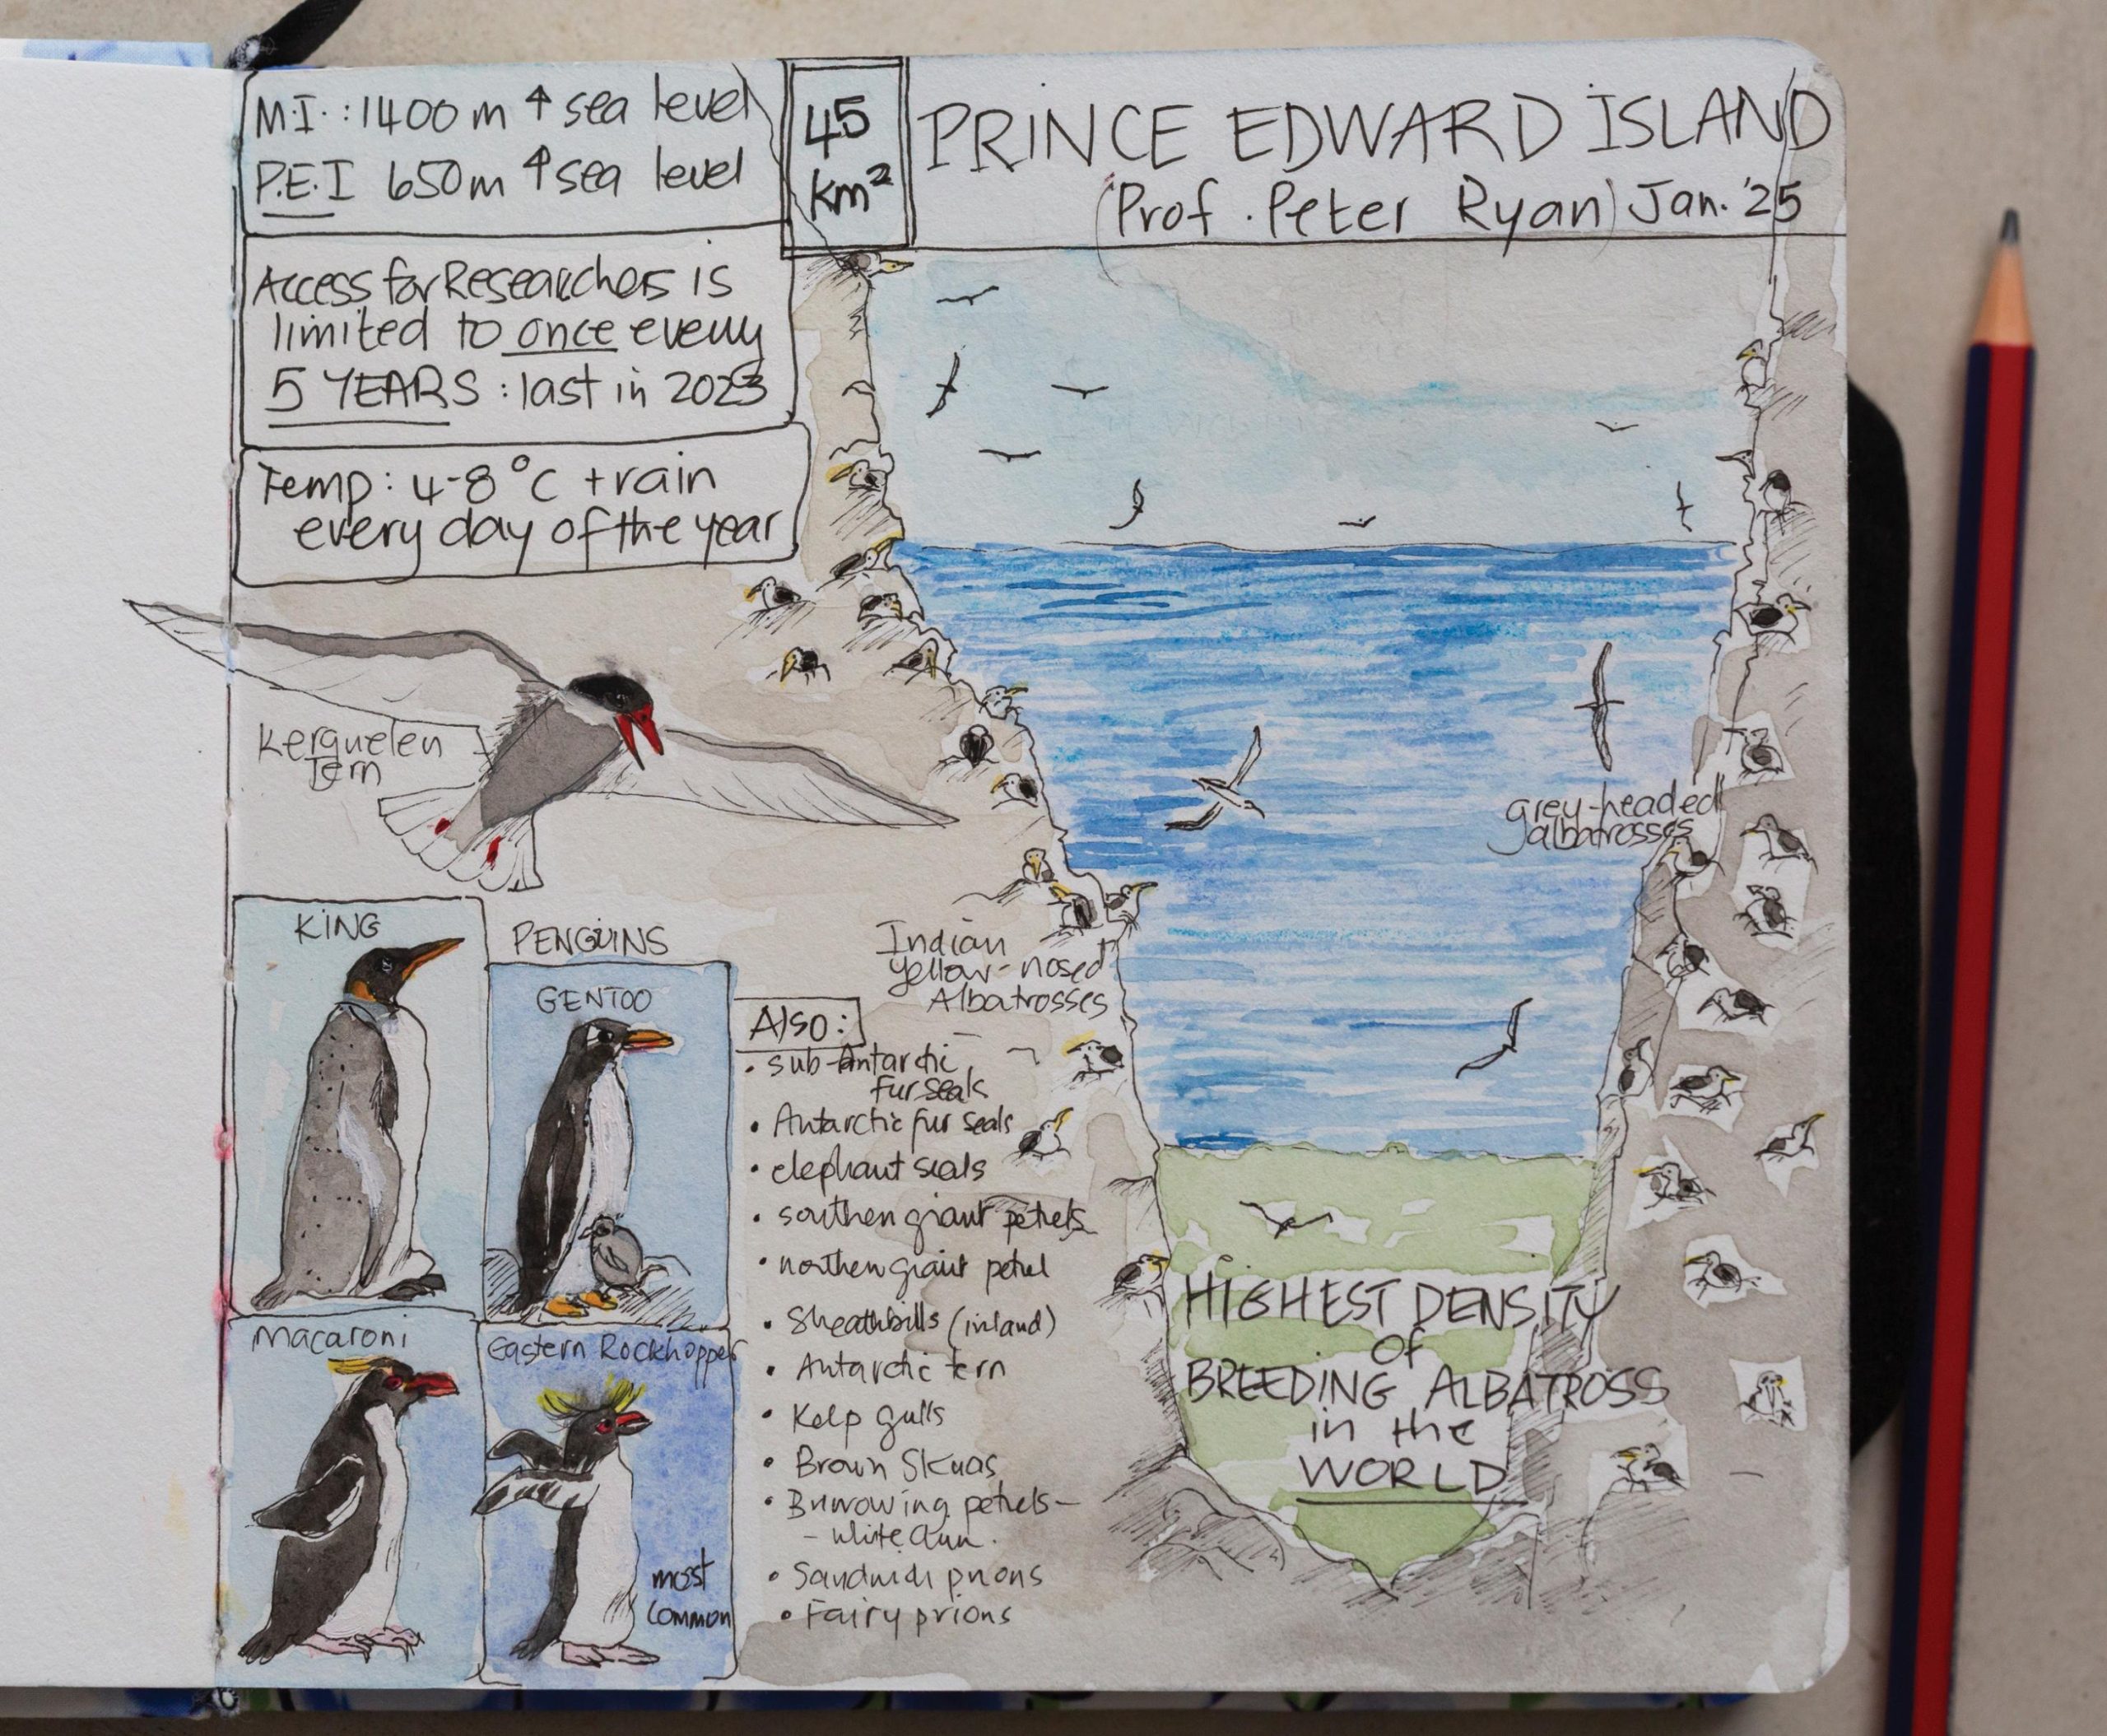 M.I. : 1400 m ↑ sea level
P.E.I 650m ↑ sea level
45
km²
PRINCE EDWARD ISLAND
(Prof. Peter Ryan) Jan. '25
Access for Researchers is
limited to once every
5 YEARS : last in 2023
Temp: 4-8°C + rain
every day of the year
Kerguelen
Tern
grey-headed
albatrosses
Indian
yellow-nosed
Albatrosses
KING
PENGUINS
GENTOO
Macaroni
Eastern Rockhopper
most
common
Also:
• sub-Antarctic
fur seals
• Antarctic fur seals
• elephant seals
• southen giant petrels
• northen giant petrel
• Sheathbills (inland)
• Antarctic tern
• Kelp gulls
• Brown Skuas
• Burrowing petrels -
- white
• Sandwich prions
• Fairy prions
HIGHEST DENSITY
of
BREEDING ALBATROSS
in the
WORLD